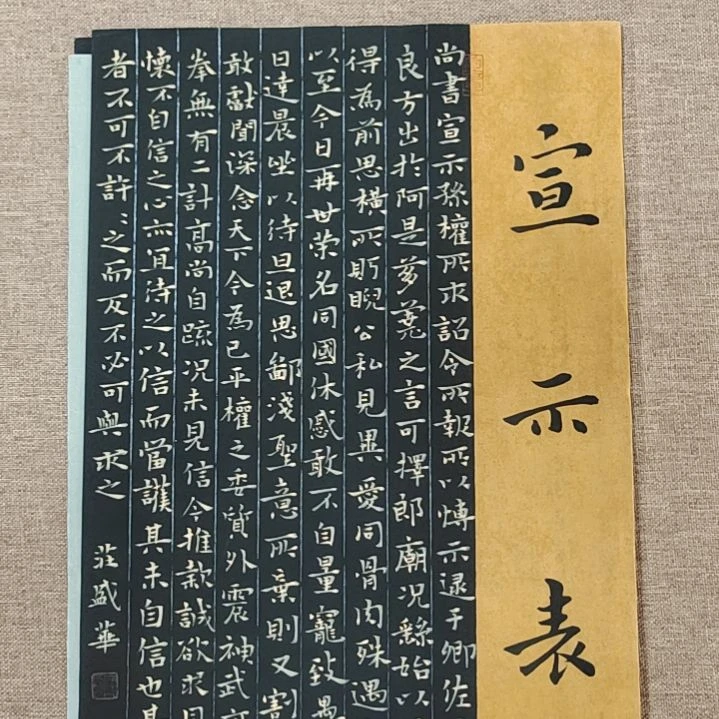 宣示表
尚書宣示孫權所求詔令所報所以博示逮于卿佐
良方出於阿是芻蕘之言可擇郎廟況繇始以
得為前思橫所盻睨公私見異愛同骨肉殊遇
以至今日再世榮名同國休慼敢不自量竊致愚
日達晨坐以待旦退思鄙淺聖意所棄則又割
敢獻聞深念天下今為已平權之委質外震神武
拳無有二計高尚自疏況未見信今推款誠欲求
懷不自信之心亦宜待之以信而當護其未自信也其
者不可不許〻之而反不必可與求之
莊盛華